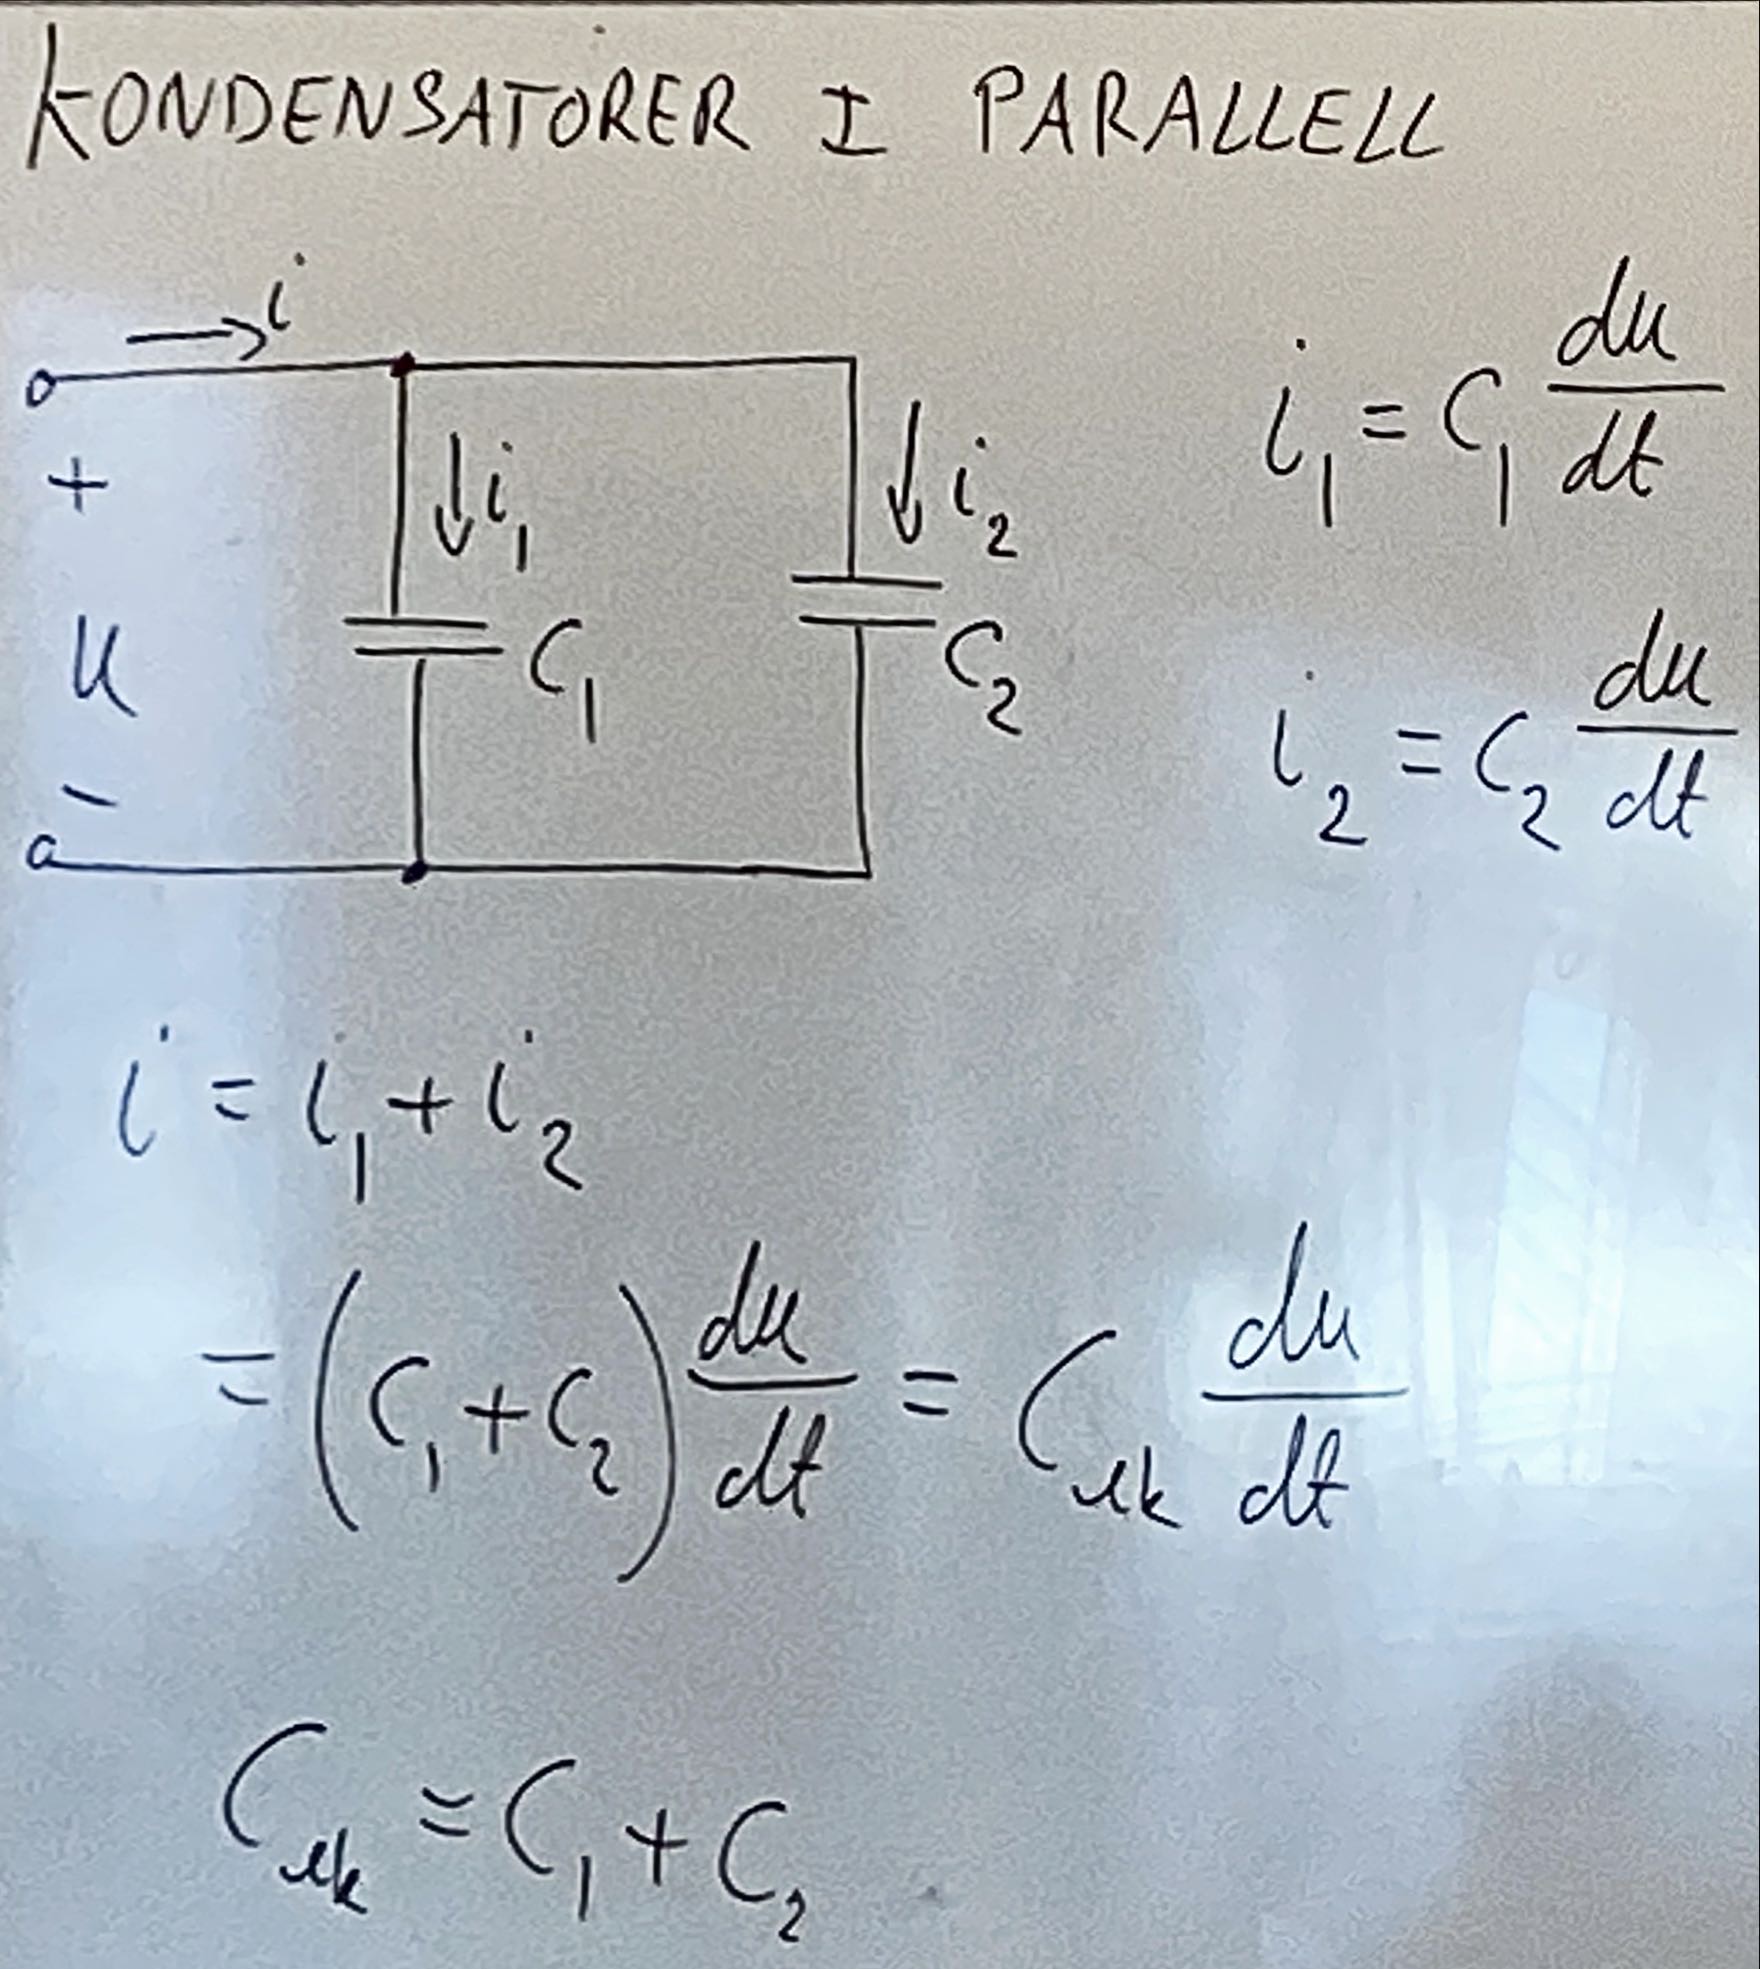 KONDENSATORER I PARALLELL
i
+
u
-
i₁
C₁
i₂
C₂
i₁ = C₁ du/dt
i₂ = C₂ du/dt
i = i₁ + i₂
= (C₁ + C₂) du/dt = Cₑₖ du/dt
Cₑₖ = C₁ + C₂